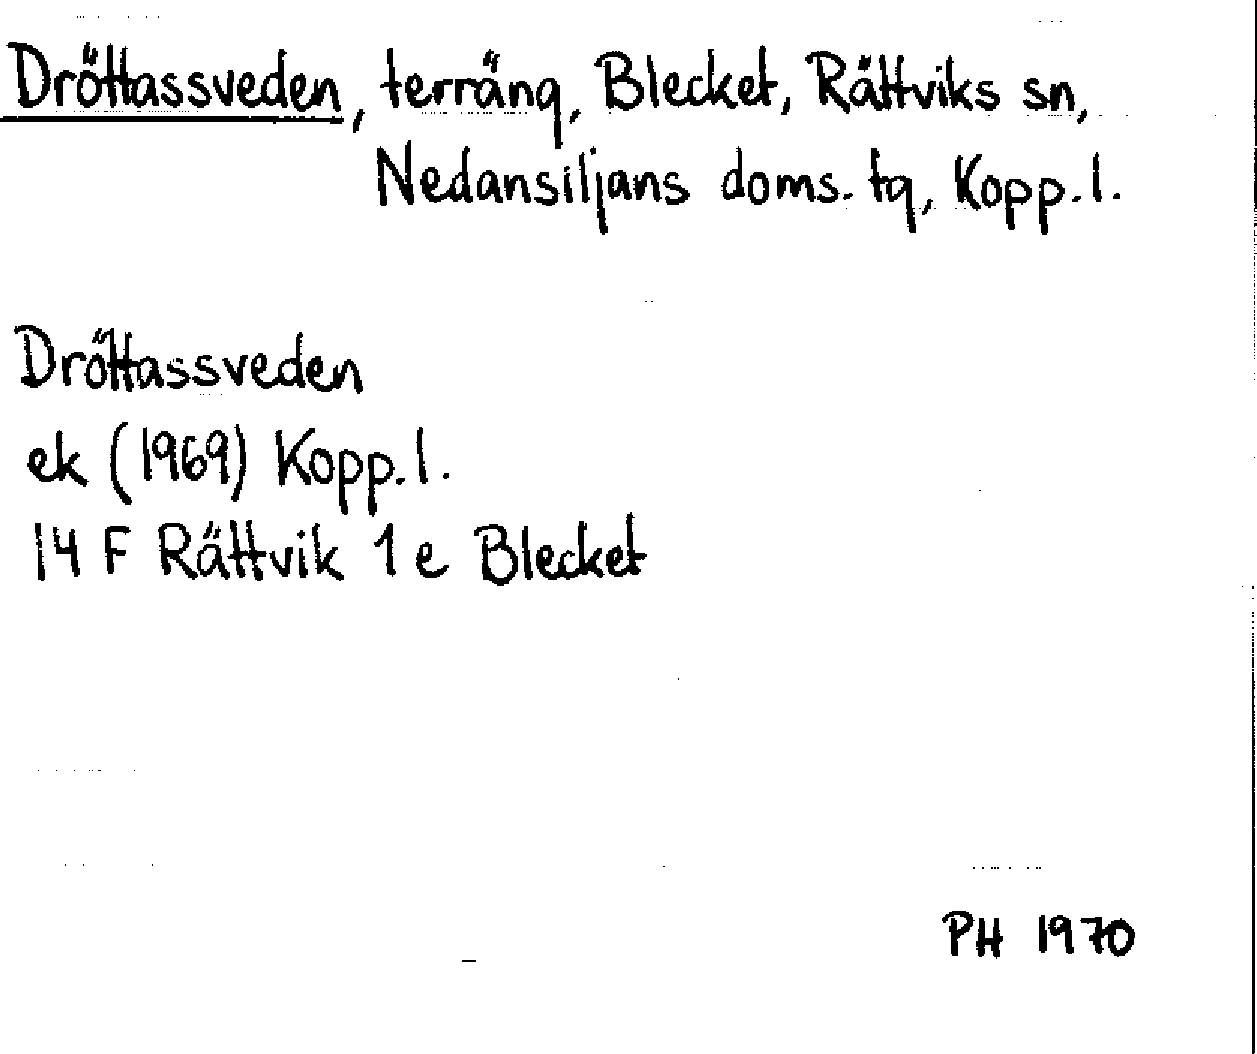 Dröttassveden, terräng, Blecket, Rättviks sn,
Nedansiljans doms. tg, Kopp. l.
Dröttassveden
ek (1969) Kopp. l.
14 F Rättvik 1 e Blecket
PH 1970